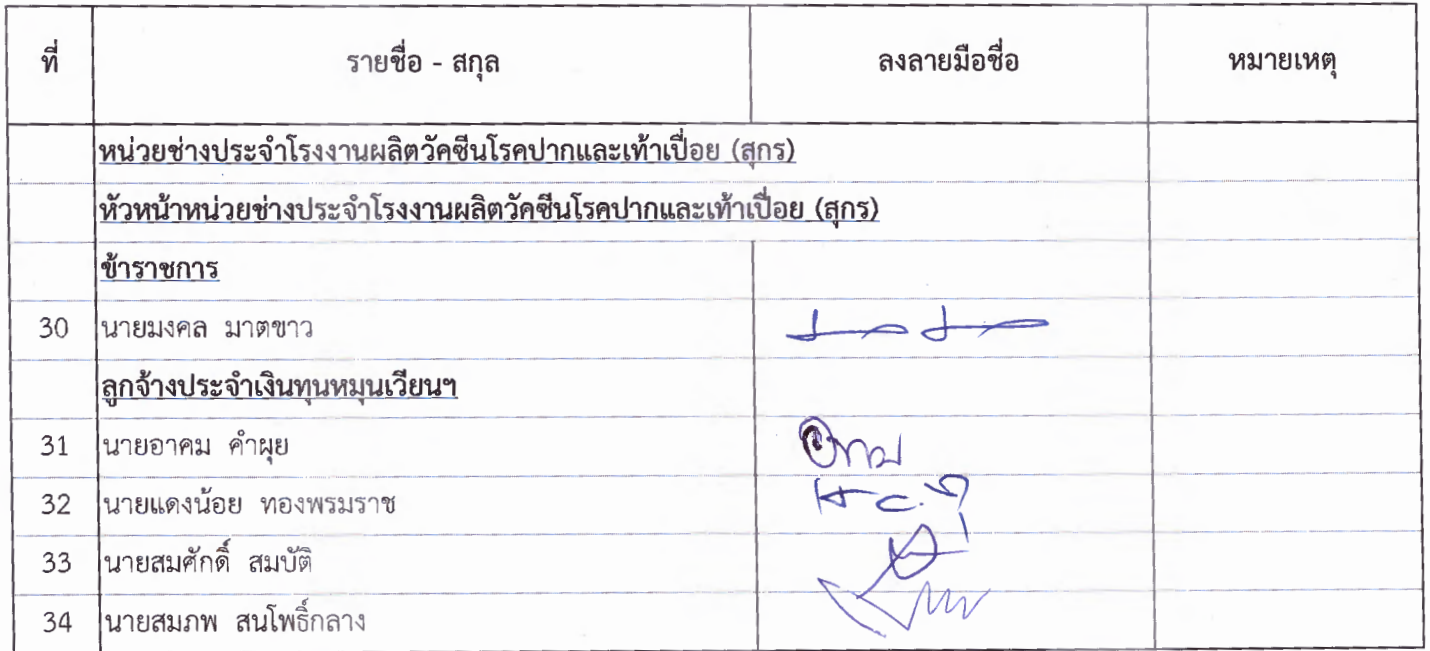 ที่ รายชื่อ - สกุล ลงลายมือชื่อ หมายเหตุ
หน่วยช่างประจำโรงงานผลิตวัคซีนโรคปากและเท้าเปื่อย (สุกร)
หัวหน้าหน่วยช่างประจำโรงงานผลิตวัคซีนโรคปากและเท้าเปื่อย (สุกร)
ข้าราชการ
30 นายมงคล มาตขาว
ลูกจ้างประจำเงินทุนหมุนเวียนฯ
31 นายอาคม คำผุย
32 นายแดงน้อย ทองพรมราช
33 นายสมศักดิ์ สมบัติ
34 นายสมภพ สนโพธิ์กลาง